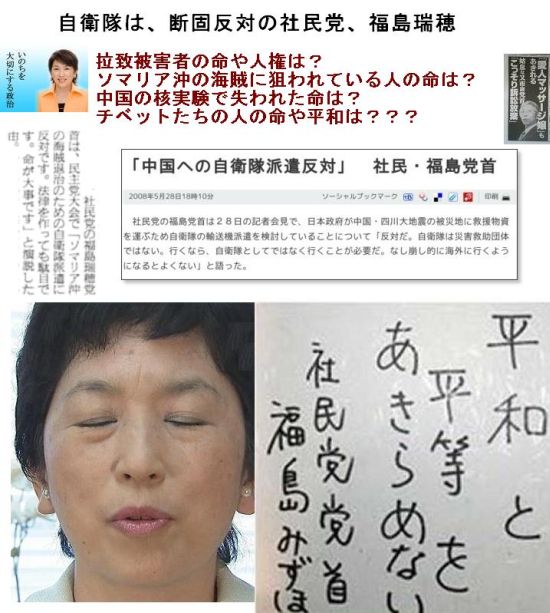 自衛隊は、断固反対の社民党、福島瑞穂
いのちを
大切にする政治
拉致被害者の命や人権は？
ソマリア沖の海賊に狙われている人の命は？
中国の核実験で失われた命は？
チベットたちの人の命や平和は？？？
「愛人マッサージ嬢」も
あきれる
こっそり訴訟放棄」
「中国への自衛隊派遣反対」　社民・福島党首
2008年5月28日18時10分
ソーシャルブックマーク
印刷
社民党の福島党首は２８日の記者会見で、日本政府が中国・四川大地震の被災地に救援物資
を運ぶため自衛隊の輸送機派遣を検討していることについて「反対だ。自衛隊は災害救助団体
ではない。行くなら、自衛隊としてではなく行くことが必要だ。なし崩し的に海外に行くよう
になるとよくない」と語った。
社民党の福島瑞穂党
首は、民主党大会で「ソマリア沖
の海賊退治のための自衛隊派遣に
反対です。法律を作っても駄目で
す。命が大事です」と演説した
由。
平和と
平等を
あきらめない
社民党党首
福島みずほ